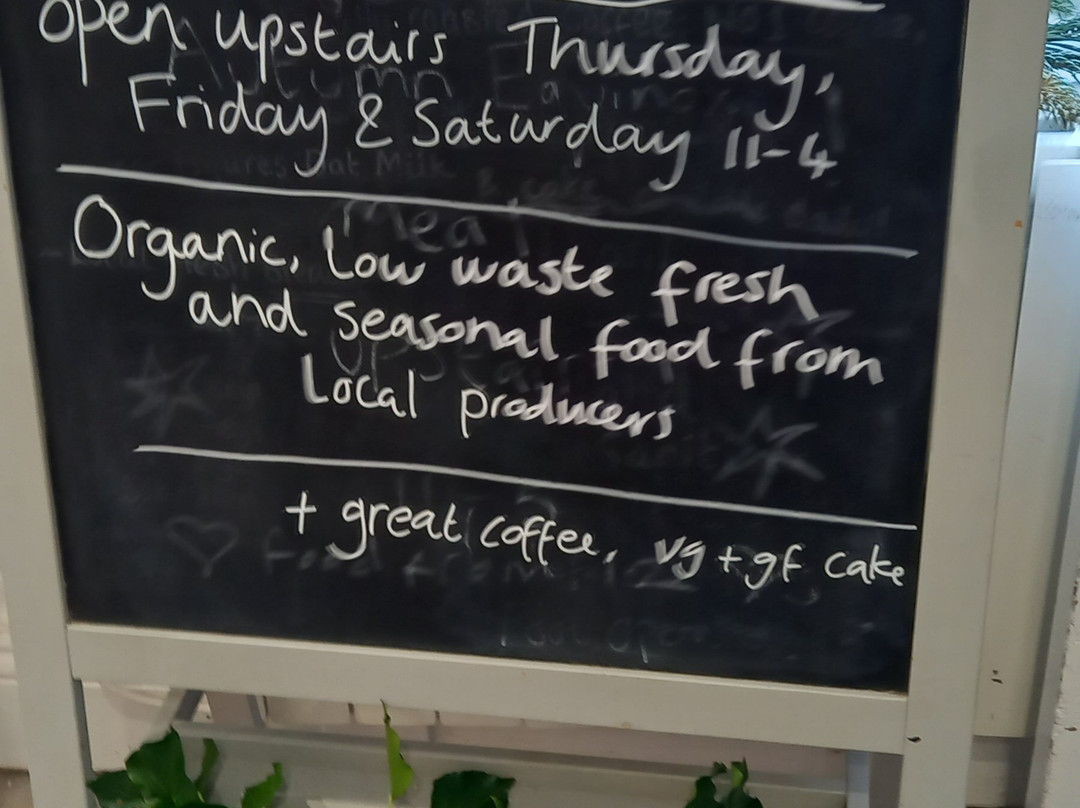 open upstairs Thursday,
Friday & Saturday 11-4
Organic, Low waste fresh
and seasonal food from
Local producers
+ great coffee, vg + gf cake